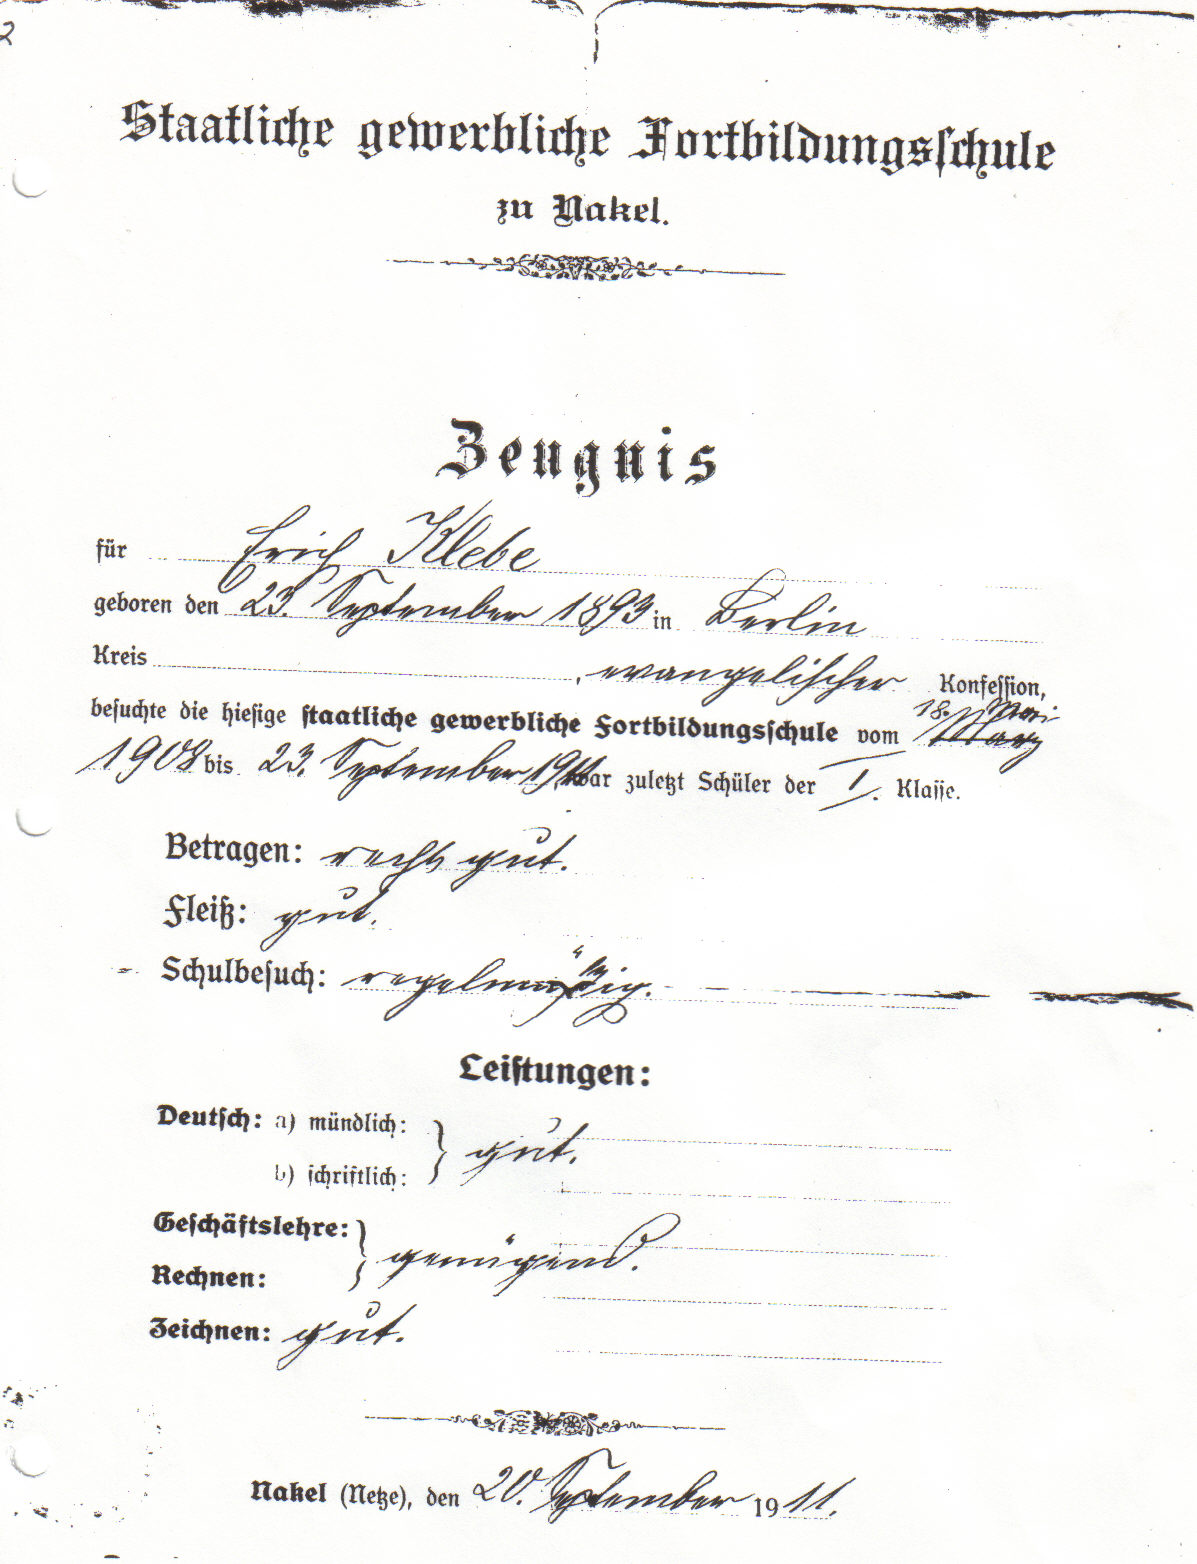 2
Staatliche gewerbliche Fortbildungsschule
zu Nakel.
Zeugnis
für Erich Klebe
geboren den 23. September 1893 in Berlin
Kreis , evangelischer Konfession,
18. Mai
besuchte die hiesige staatliche gewerbliche Fortbildungsschule vom März
1908 bis 23. September 1911 war zuletzt Schüler der I. Klasse.
Betragen: recht gut.
Fleiß: gut.
Schulbesuch: regelmäßig.
Leistungen:
Deutsch: a) mündlich: } gut.
b) schriftlich:
Geschäftslehre: } genügend.
Rechnen:
Zeichnen: gut.
Nakel (Netze), den 20. September 1911.